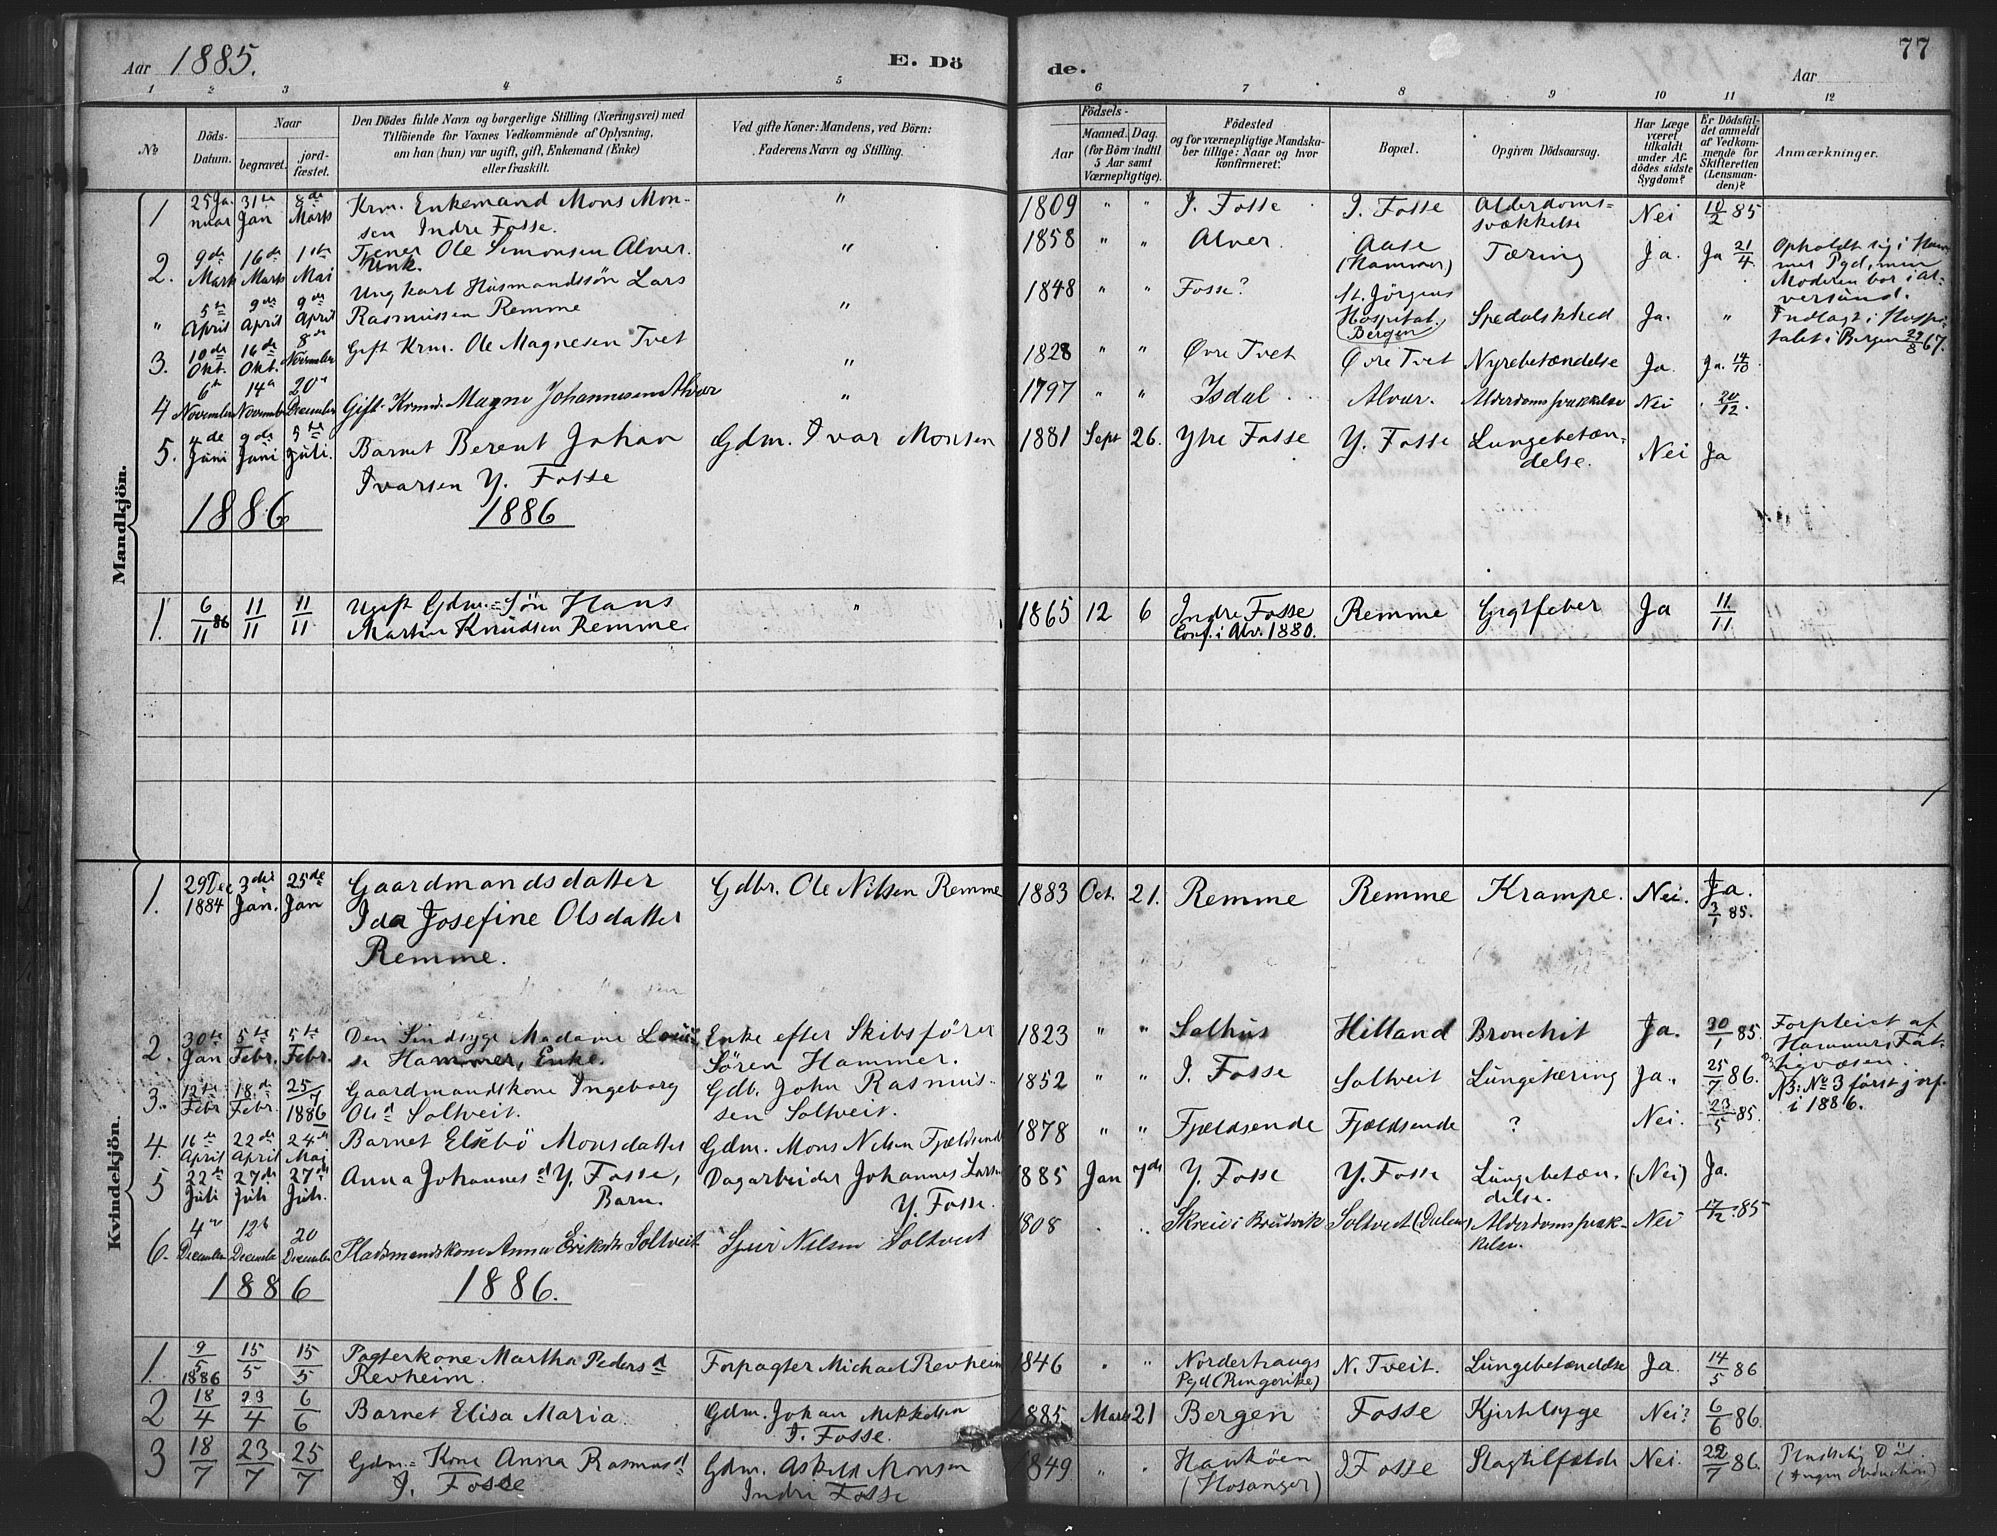 Aar 1885.
E. Dö
de.
Aar
77
1 2 3 4 5 6 7 8 9 10 11 12
No
Döds-Datum.
Naar
begravet.
jordfæstet.
Den Dödes fulde Navn og borgerlige Stilling (Næringsvei) med
Tilföiende for Voxnes Vedkommende af Oplysning,
om han (hun) var ugift, gift, Enkemand (Enke)
eller fraskilt.
Ved gifte Koner: Mandens, ved Börn:
Faderens Navn og Stilling.
Födsels-
Aar
Maaned. Dag.
(for Börn indtil
5 Aar samt
Værnepligtige).
Födested
og for værnepligtige Mandska-
ber tillige: Naar og hvor
konfirmeret.
Bopæl.
Opgiven Dödsaarsag.
Har Læge
været
tilkaldt
under Af-
dödes sidste
Sygdom?
Er Dödsfal-
det anmeldt
af Vedkom-
mende for
Skifteretten
(Lensman-
den)?
Anmærkninger.
Mandkjön.
1 25 Januar 31te Jan 8de Marts Krm. Enkemand Mons Monsen Indre Fosse. " 1809 " " I. Fosse I. Fosse Alderdomssvækkelse Nei 10/2 85
2. 9de Marts 16de Marts 1ste Mai Tjener Ole Simonsen Alver. Unk. " 1858 " " Alver. Aase (Hammer) Tæring Ja. Ja 21/4 Opholdt sig i Hammer Pgd, men Moderen bor i Alversund.
" 5te April 9de April 9de April Ungkarl Husmandssön Lars Rasmussen Remme " 1848 " " Fosse? St. Jörgens Hospital. Bergen Spedalskhed Ja. " Indlagt i Hospitalet i Bergen 29/8 67.
3. 10de Okt. 16de Okt. 8de November Gift Krm. Ole Magnesen Tvet " 1828 " " Øvre Tvet Øvre Tvet Nyrebetændelse Ja Ja. 14/10
4 6te November 14de November 20de December Gift Krmd. Magne Johannesen Alver " 1797 " " Isdal Alver. Alderdomssvækkelse Nei 20/12.
5. 4de Juni 9de Juni 5te Juli. Barnet Berent Johan Ivarsen Y. Fosse Gdm. Ivar Monsen 1881 Sept 26. Ytre Fosse Y. Fosse Lungebetændelse. Nei Ja
1886 1886
1. 6/11 86 11/11 11/11 Ugift Gdm.=Sön Hans Martin Knudsen Remme. " 1865 12 6 Indre Fosse Conf. i Alv. 1880. Remme Gigtfeber Ja 11/11
Kvindekjön.
1. 29 Dec 1884 3die Jan. 25de Jan Gaardmandsdatter Ida Josefine Olsdatter Remme. Gdbr. Ole Nilsen Remme 1883 Oct. 21. Remme Remme Krampe. Nei. Ja. 3/1 85.
2. 30te Jan 5te Febr. 5te Febr. Den Sindsyge Madame Louise Hammer, Enke. Enke efter Skibsförer Sören Hammer. 1823 " " Salhus Hilland Bronchit Ja. 30/1 85. Forpleiet af Hammers Fattigvæsen
3. 12te Febr 18.de Febr. 25/7 1886 Gaardmandskone Ingeborg Olsd Soltveit. Gdb. John Rasmussen Soltveit. 1852 " " I. Fosse Soltveit Lungetæring Ja.. 25/7 86. NB: No 3 först jorf. i 1886.
4. 16de April 22de April 24de Mai Barnet Elsebö Monsdatter Gdm. Mons Nilsen Fjeldsende 1878 " " Fjældsende Fjældsende ? Nei. 23/5 85.
5 22de Juli 27de Juli 27de Juli. Anna Johannesd Y. Fosse, Barn. Dagarbeider Johannes Larsen Y. Fosse. 1885 Jan 7de Y. Fosse Y. Fosse Lungebetændelse. (Nei) Ja.
6. 4de December 12te December 20 December Anna Eriksdtr Soltveit Nilsen Soltveit 1808 Skreie i Bruvik Soltveit Alderdomssvækkelse. Nei 17/12 85
1886 1886.
1. 9/5 1886 15/5 15/5 Pagterkone Martha Pedersd Revheim. Forpagter Michael Revheim 1846 " " Norderhaugs Pgd (Ringerike) N. Tveit. Lungebetændelse Ja. 14/5 86
2 18/4 23/4 6/6 Barnet Elisa Maria Gdm. Johan Mikkelsen I. Fosse. 1885 Marts 21 Bergen Fosse Kjertelsyge Nei? 6/6 86.
3 18/7 23/7 25/7 Gdm.=Kone Anna Rasmusd I. Fosse Gdm. Askild Monsen Indre Fosse 1849 " " (Hosanger) I Fosse Slagtilfælde Nei. 22/7 86. Pludselig Död. (Ingen Obduction)